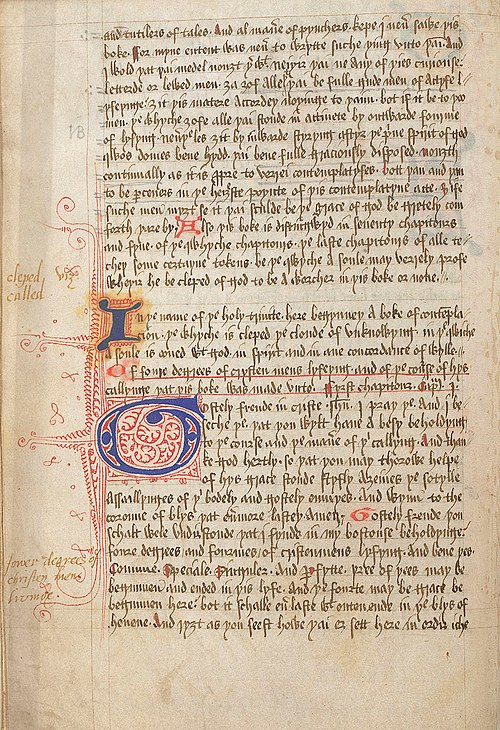 and tutilers of tales. And al maner of pynchers. kepe I neuer sawe þis
boke. ffor myne entent was neuer to wrytte suche þing vnto þai. And
I wold þat þai medel nouȝt þer wt. neiþer þai ne any of þies curiouse
letterde or lewed men. ȝa ȝof alle þai be fulle gude men of actyfe l-
yfeynge. ȝit þis matere accordeþ noþinge to þaim. bot if it be to þoo
men. þe whyche ȝofe alle þai stonde in actiuete by outwarde fourme
of lyfyng. neuerþeles ȝit by inwarde styryng aftyr þe priue spirit of god
whos domes bene hydd þai bene fulle graciously disposed. nouȝth
continually as it is propre to verrei contemplatyfes. bott þan and þan
to be perceners in þe heiste poynte of þis contemplatyue acte. Ȝ ife
suche men myȝt se it þai schulde be þe grace of god be gretely com
forth þare by. Also þis boke is distingwyd in seuenty chapitours
and fyue. of þe whyche chapitours. þe laste chapitours of alle te-
chey some certayne tokens. be þe whyche a soule may verrely profe
wheþyr he be cleped of god to be a worcher in þis boke or none.
cleped viz
called
In þe name of þe holy trinite. here begynneþ a boke of contempla-
cion. þe whyche is cleped þe cloude of vnknowyng. in þe whiche
a soule is oned wt god. in spirit and in ane concordance of wylle.
Of foure degrees of cristen mens lyfeyng. and of þe course of hys
callynge þat þis boke was made vnto. ffirst chapitour. Cap. 1.
Gostely frende in criste Ihu. I pray þe. And I be-
seche þe. þat þou wylt haue a besy beholdyng
to þe course and þe maner of þi callyng. And than
ke god hertly. so þat þou may thorowe helpe
of hys grace stonde styfly aȝeines þe sotylle
Assallynges of þi bodely and gostely enmyes. And wynn to the
coroune of blys þat euermore lasteþ. Amen. Gostely frende þou
schalt wele vndirstonde þat I fynde in my bostouse beholdynge.
foure degrees and fourmes of cristenmens lyfyng. And bene þes.
Commune. Speciale. Singuler. And Perfytte. þre of þies may be
begunnen and ended in þis lyfe. And þe fourte may be grace be
begunnen here. bot it schalle euer laste wt outen ende in þe blys of
heuene. And ryȝt as þou seest howe þai er sett here in ordir iche
fower degrees of
christen mens
livinge.